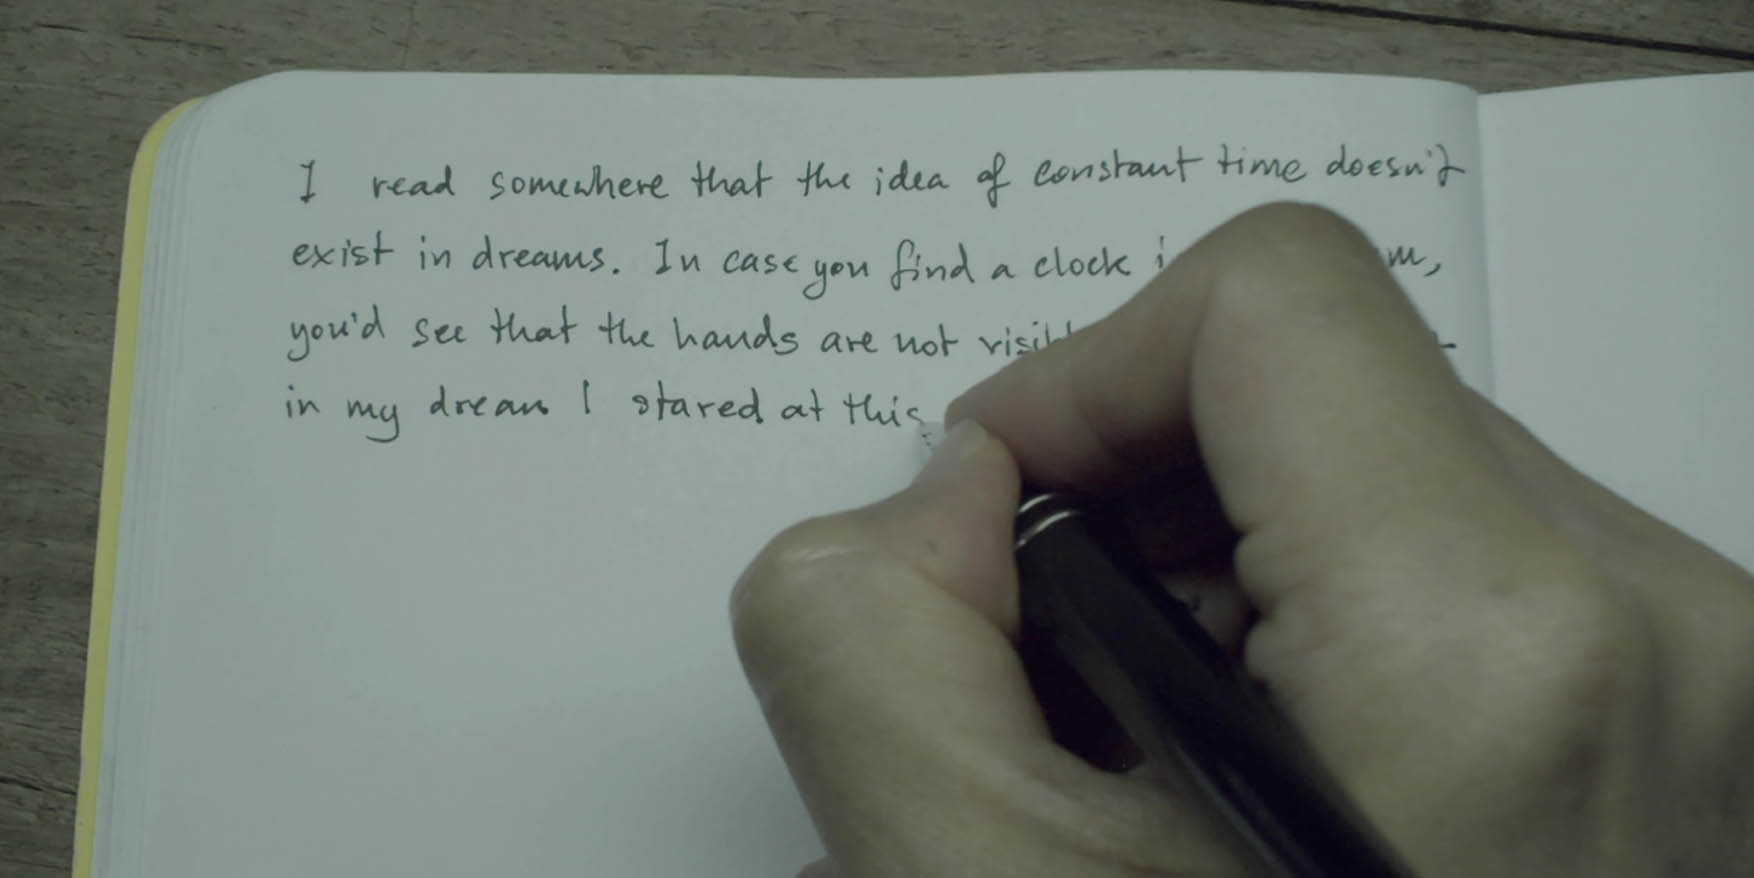 I read somewhere that the idea of constant time doesn't
exist in dreams. In case you find a clock
you'd see that the hands are not
in my dream I stared at this